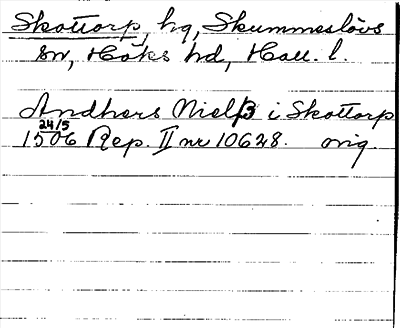 Skottorp, hg, Skummeslövs
sn, Höks hd, Hall. l.
Andhers Nielß i Skottorp
24/5
1506 Rep. II nr 10628. orig